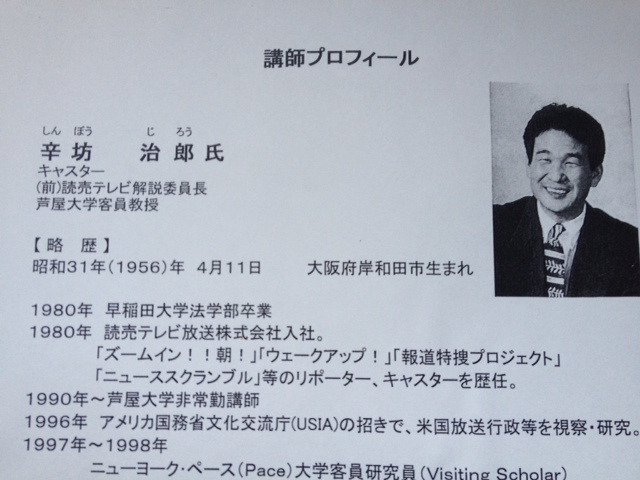 講師プロフィール
しん ぼう じ ろう
辛坊 治郎氏
キャスター
(前)読売テレビ解説委員長
芦屋大学客員教授
【 略 歴 】
昭和31年(1956)年 4月11日 大阪府岸和田市生まれ
1980年 早稲田大学法学部卒業
1980年 読売テレビ放送株式会社入社。
「ズームイン!!朝!」「ウェークアップ!」「報道特捜プロジェクト」
「ニューススクランブル」等のリポーター、キャスターを歴任。
1990年~芦屋大学非常勤講師
1996年 アメリカ国務省文化交流庁(USIA)の招きで、米国放送行政等を視察・研究。
1997年~1998年
ニューヨーク・ペース(Pace)大学客員研究員(Visiting Scholar)